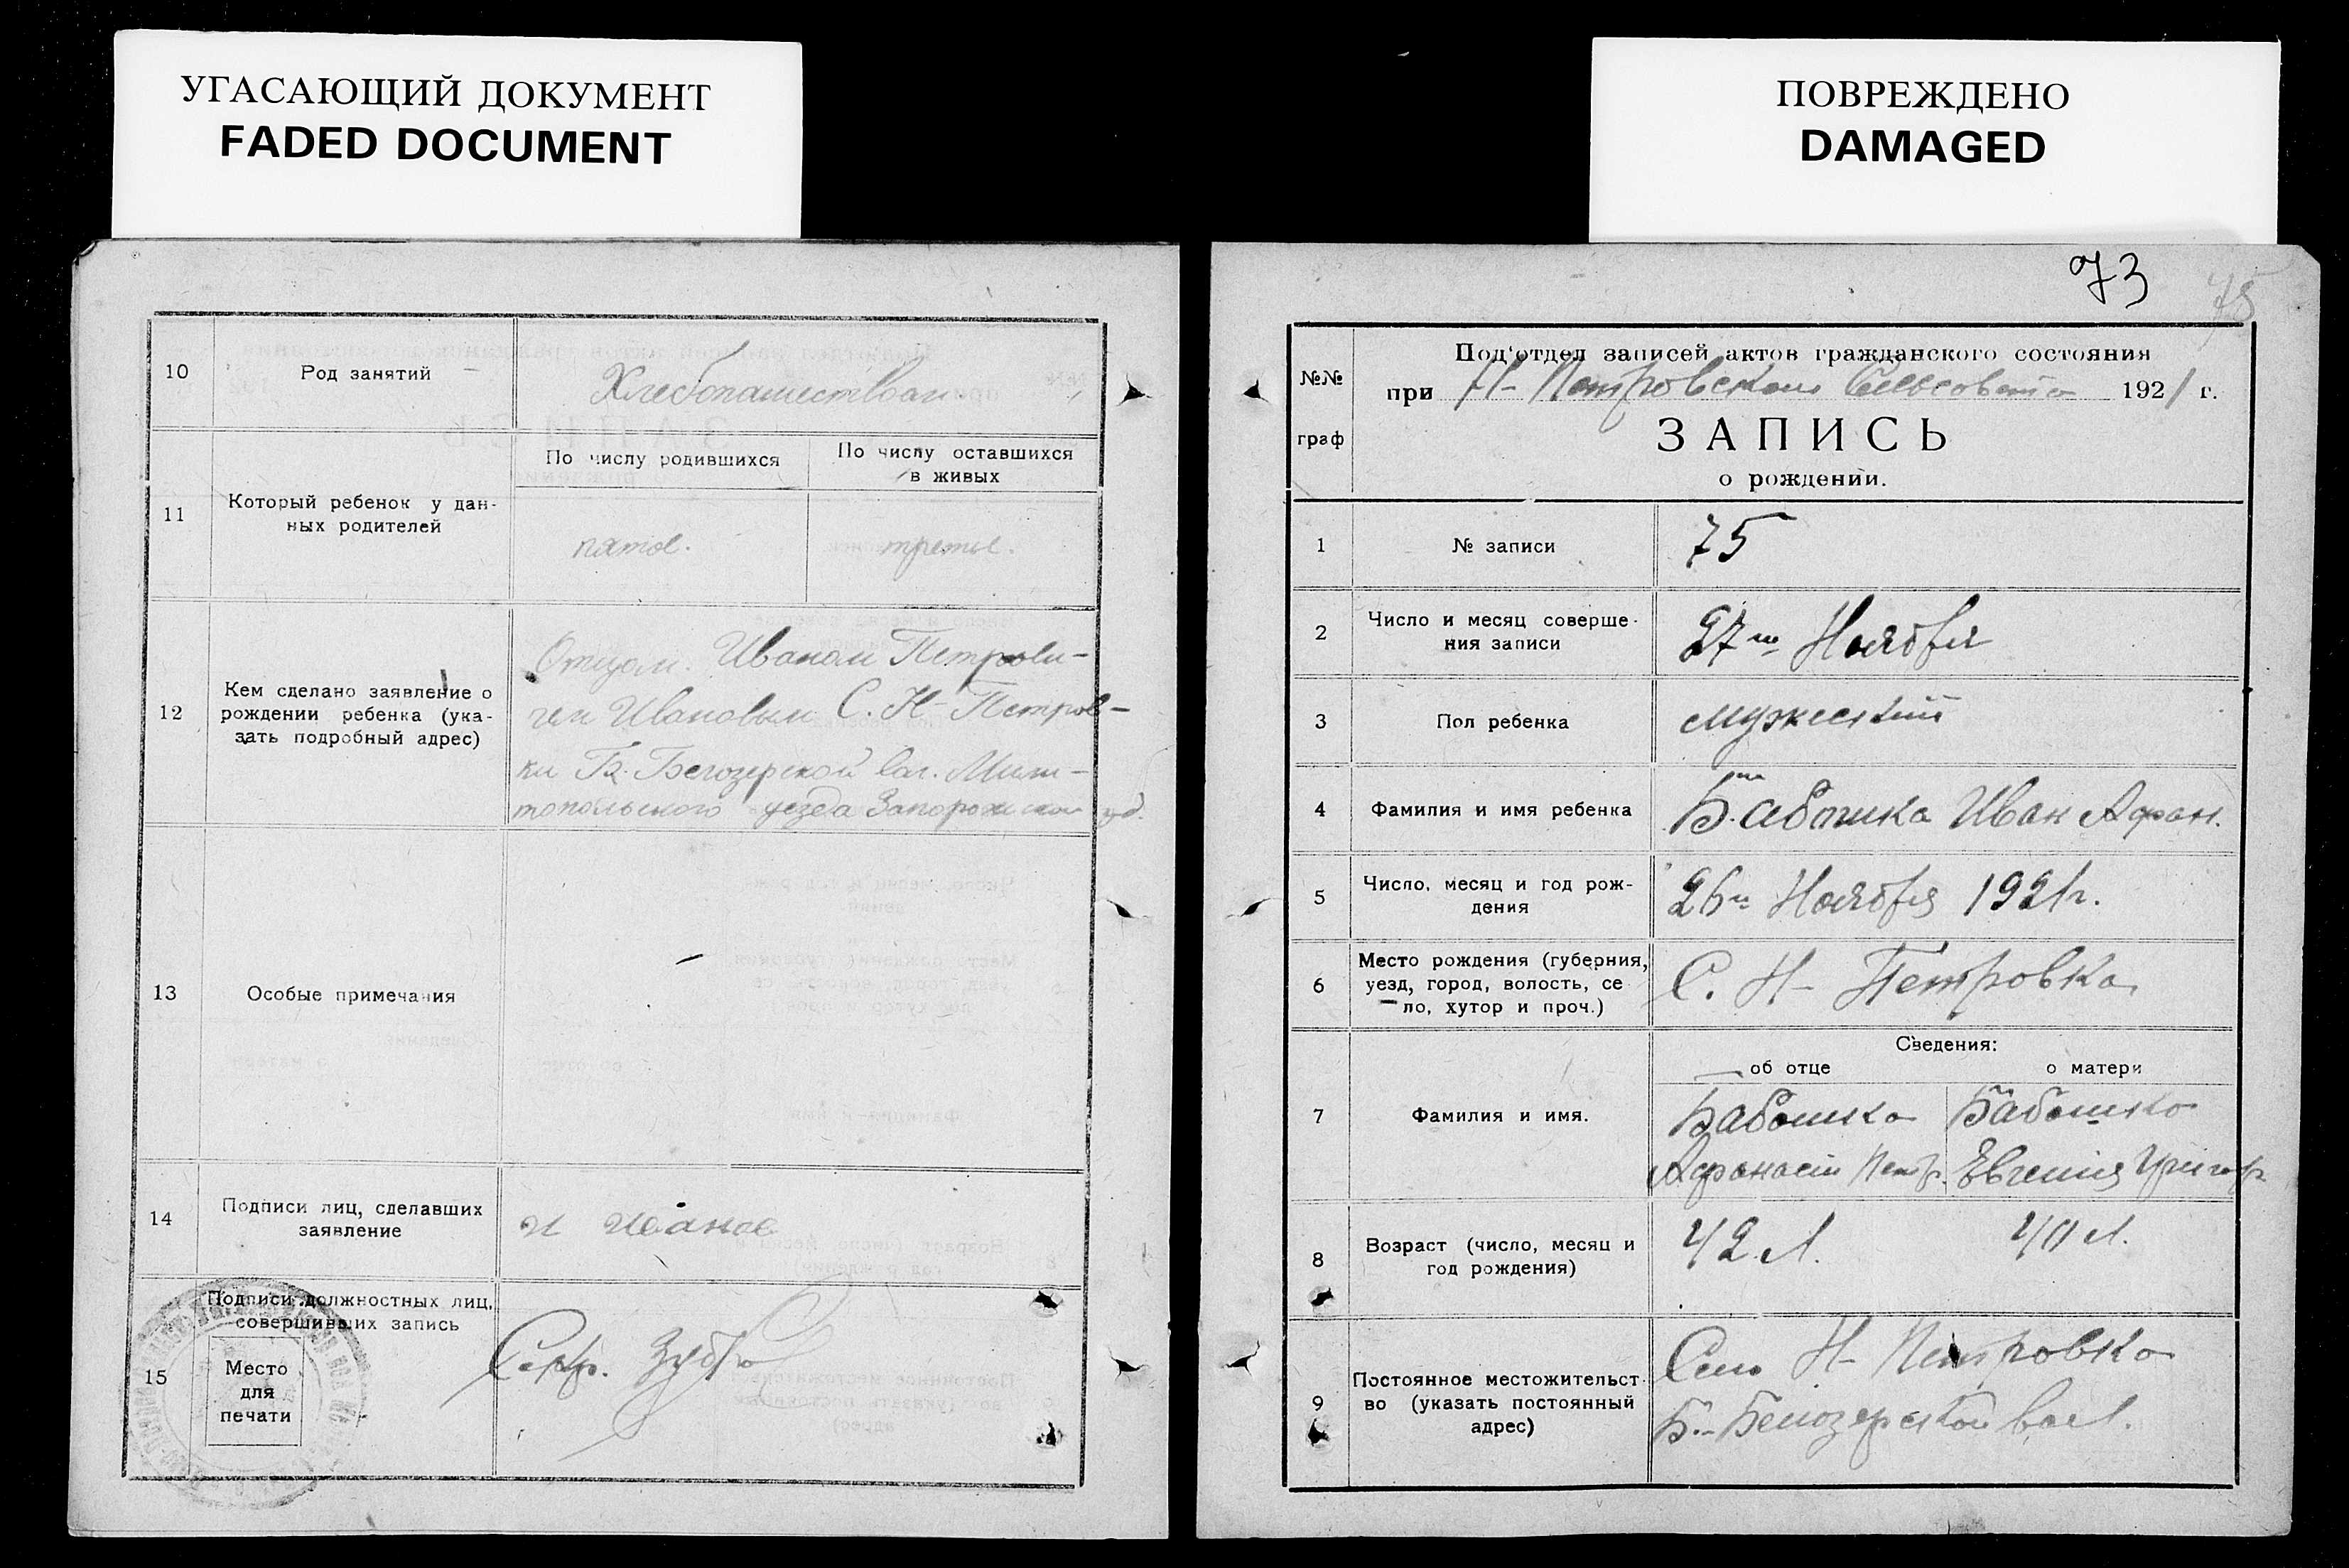 УГАСАЮЩИЙ ДОКУМЕНТ
FADED DOCUMENT
10
Род занятий
Хлебопашеством.
11
Который ребенок у дан-
ных родителей
По числу родившихся
По числу оставшихся
в живых
пятое.
третье.
12
Кем сделано заявление о
рождении ребенка (ука-
зать подробный адрес)
Отцом. Иваном Петрови-
чем Ивановым С. Н-Петров-
ки Б. Белозерской вол. Мели-
топольского уезда Запорожской губ.
13
Особые примечания
–
14
Подписи лиц, сделавших
заявление
и иванов
15
Подписи должностных лиц,
совершивших запись
Место
для
печати
ПОВРЕЖДЕНО
DAMAGED
73
75
№№
граф
Под'отдел записей актов гражданского состояния
при Н-Петровском Сельсовете 1921 г.
ЗАПИСЬ
о рождении.
1
№ записи
75
2
Число и месяц соверше-
ния записи
27го Ноября
3
Пол ребенка
мужеский
4
Фамилия и имя ребенка
Бабошка Иван Афан.
5
Число, месяц и год рож-
дения
26го Ноября 1921 г.
6
Место рождения (губерния,
уезд, город, волость, се
ло, хутор и проч.)
С. Н-Петровка
7
Фамилия и имя.
Сведения:
об отце
о матери
Бабошка
Афанасий Петр.
Бабошко
Евгения Григор
8
Возраст (число, месяц и
год рождения)
42 л.
40 л.
9
Постоянное местожительст-
во (указать постоянный
адрес)
Село Н-Петровка
Б.-Белозерской вол.